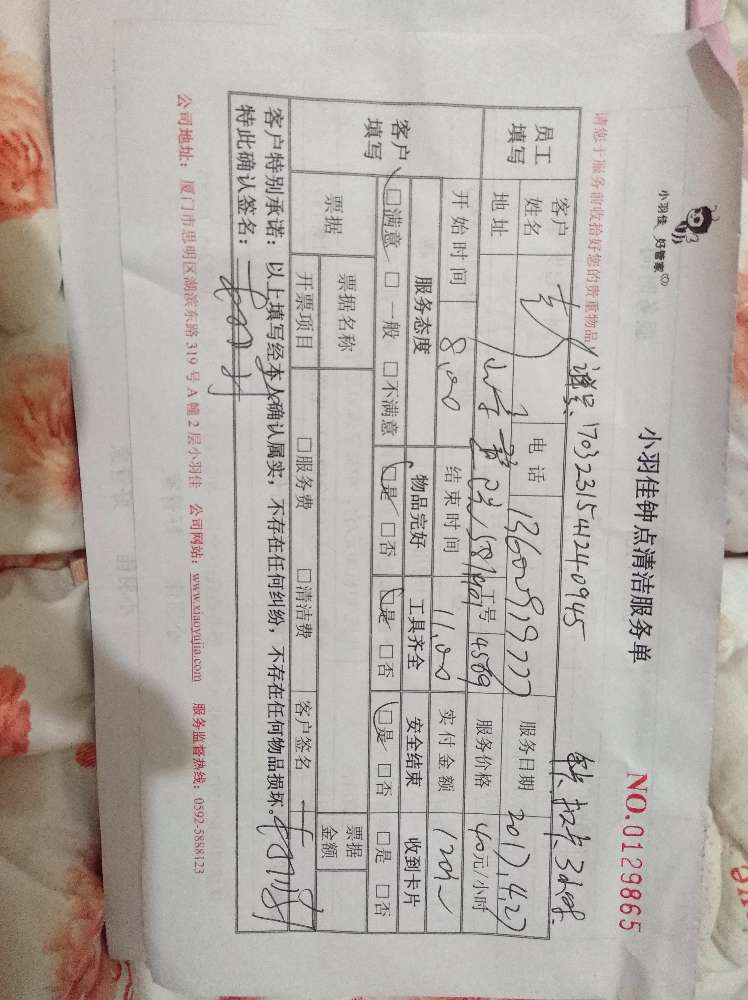 小羽佳 好管家
小羽佳钟点清洁服务单
NO.0129865
请您于服务前收拾好您的贵重物品
170323154124 0945
扣卡3小时
员工填写
客户姓名
电话 13600919777
服务日期 2017.4.27
地址
工号 4569
服务价格 40元/小时
客户填写
开始时间 8:00
结束时间 11:00
实付金额 120元
服务态度 物品完好 工具齐全 安全结束 收到卡片
□满意 □一般 □不满意 □是 □否 □是 □否 □是 □否 □是 □否
票据
票据名称
票据金额
开票项目 □服务费 □清洁费 客户签名
客户特别承诺：以上填写经本人确认属实，不存在任何纠纷，不存在任何物品损坏。
特此确认签名：
公司地址：厦门市思明区湖滨东路319号A幢2层小羽佳 公司网站：www.xiaoyujia.com 服务监督热线：0592-5888123